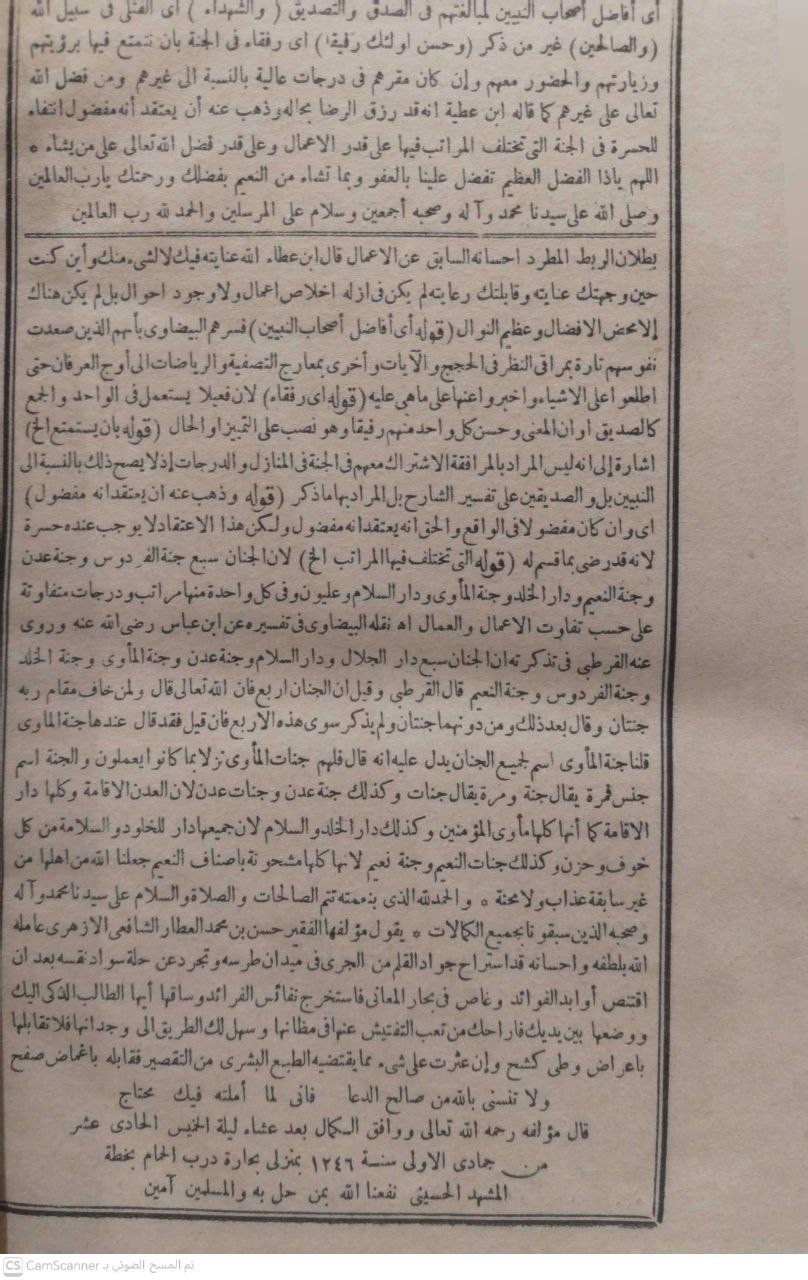 أى أفاضل أصحاب النبيين لمبالغتهم فى الصدق والتصديق ( والشهداء ) أى القتلى فى سبيل الله
(والصالحين) غير من ذكر (وحسن اولئك رفيقا) اى رفقاء فى الجنة بان نتمتع فيها برؤيتهم
وزيارتهم والحضور معهم وإن كان مقرهم فى درجات عالية بالنسبة الى غيرهم ومن فضل الله
تعالى على غيرهم كما قاله ابن عطية انه قد رزق الرضا بحاله وذهب عنه أن يعتقد أنه مفضول انتفاء
للحسرة فى الجنة التى تختلف المراتب فيها على قدر الاعمال وعلى قدر فضل الله تعالى على من يشاء *
اللهم ياذا الفضل العظيم تفضل علينا بالعفو وبما تشاء من النعيم بفضلك ورحمتك يارب العالمين
وصلى الله على سيدنا محمد وآله وصحبه أجمعين وسلام على المرسلين والحمد لله رب العالمين
بطلان الربط المطرد احسانه السابق عن الاعمال قال ابن عطاء الله عنايته فيك لالشىء منك وأين كنت
حين وجهتك عنايته وقابلتك رعايته لم يكن فى ازله اخلاص اعمال ولا وجود احوال بل لم يكن هناك
إلا محض الافضال وعظيم النوال (قوله أى أفاضل أصحاب النبيين) فسرهم البيضاوى بأنهم الذين صعدت
نفوسهم تارة بمراقى النظر فى الحجج والآيات وأخرى بمعارج التصفية والرياضات الى أوج العرفان حتى
اطلعوا على الاشياء واخبروا عنها على ماهى عليه (قوله اى رفقاء) لان فعيلا يستعمل فى الواحد والجمع
كالصديق او ان المعنى وحسن كل واحد منهم رفيقا وهو نصب على التمييز او الحال (قوله بان يستمتع الخ)
اشارة إلى انه ليس المراد بالمرافقة الاشتراك معهم فى الجنة فى المنازل والدرجات إذ لا يصح ذلك بالنسبة الى
النبيين بل والصديقين على تفسير الشارح بل المراد بها ماذكر (قوله وذهب عنه ان يعتقد انه مفضول)
اى وان كان مفضولا فى الواقع والحق انه يعتقد انه مفضول ولكن هذا الاعتقاد لا يوجب عنده حسرة
لانه قد رضى بما قسم له (قوله التى تختلف فيها المراتب الخ) لان الجنان سبع جنة الفردوس وجنة عدن
وجنة النعيم ودار الخلد وجنة المأوى ودار السلام وعليون وفى كل واحدة منها مراتب ودرجات متفاوتة
على حسب تفاوت الاعمال والعمال اه نقله البيضاوى فى تفسيره عن ابن عباس رضى الله عنه وروى
عنه القرطبى فى تذكرته ان الجنان سبع دار الجلال ودار السلام وجنة عدن وجنة المأوى وجنة الخلد
وجنة الفردوس وجنة النعيم قال القرطبى وقيل ان الجنان اربع فان الله تعالى قال ولمن خاف مقام ربه
جنتان وقال بعد ذلك ومن دونهما جنتان ولم يذكر سوى هذه الاربع فان قيل فقد قال عندها جنة الماوى
قلنا جنة المأوى اسم لجميع الجنان يدل عليه انه قال فلهم جنات المأوى نزلا بما كانوا يعملون والجنة اسم
جنس فمرة يقال جنة ومرة يقال جنات وكذلك جنة عدن وجنات عدن لان العدن الاقامة وكلها دار
الاقامة كما أنها كلها مأوى المؤمنين وكذلك دار الخلد والسلام لان جميعها دار للخلود والسلامة من كل
خوف وحزن وكذلك جنات النعيم وجنة نعيم لانها كلها مشحونة باصناف النعيم جعلنا الله من اهلها من
غير سابقة عذاب ولا محنة * والحمد لله الذى بنعمته تتم الصالحات والصلاة والسلام على سيدنا محمد وآله
وصحبه الذين سبقونا بجميع الكمالات * يقول مؤلفها الفقير حسن بن محمد العطار الشافعى الازهرى عامله
الله بلطفه واحسانه قد استراح جواد القلم من الجرى فى ميدان طرسه وتجرد عن حلة سواد نقسه بعد ان
اقتنص أوابد الفوائد وغاص فى بحار المعانى فاستخرج نفائس الفرائد وساقها أيها الطالب الذكى اليك
ووضعها بين يديك فاراحك من تعب التفتيش عنها فى مظانها وسهل لك الطريق الى وجدانها فلا تقابلها
باعراض وطى كشح وإن عثرت على شىء مما يقتضيه الطبع البشرى من التقصير فقابله باغماض صفح
ولا تنسنى بالله من صالح الدعا فانى لما أملته فيك محتاج
قال مؤلفه رحمه الله تعالى ووافق الكمال بعد عشاء ليلة الخميس الحادى عشر
من جمادى الاولى سنة ١٢٤٦ بمنزلى بحارة درب الحمام بخطة
المشهد الحسينى نفعنا الله بمن حل به والمسلمين آمين
CS CamScanner تم المسح الضوئي بـ